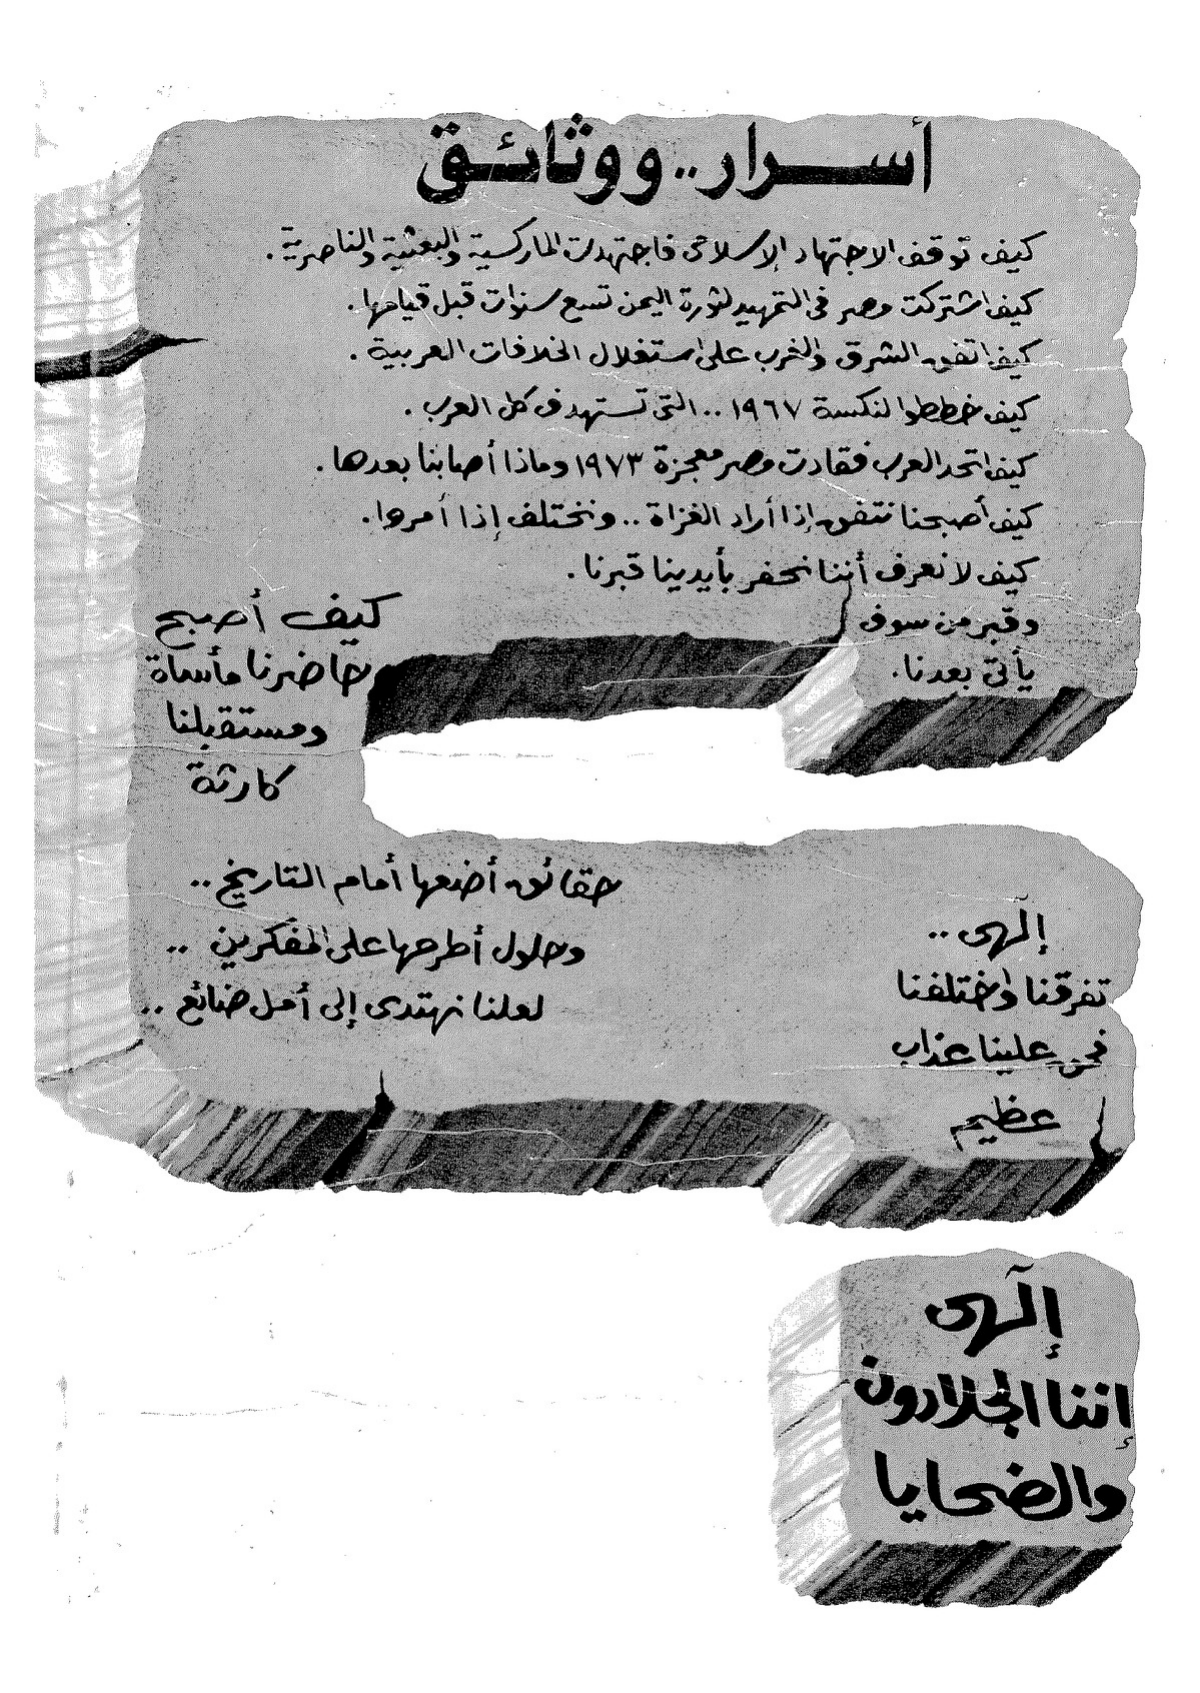 أسرار.. ووثائق
كيف توقف الاجتهاد الإسلامى فاجتهدت الماركسية والبعثية والناصرية.
كيف اشتركت مصر فى التمهيد لثورة اليمن تسع سنوات قبل قيامها.
كيف اتفق الشرق والغرب على استغلال الخلافات العربية.
كيف خططوا لنكسة ١٩٦٧ .. التى تستهدف كل العرب.
كيف اتحد العرب فقادت مصر معجزة ١٩٧٣ وماذا أصابنا بعدها.
كيف أصبحنا نتفق إذا أراد الغزاة .. ونختلف إذا أمروا.
كيف لا نعرف أننا نحفر بأيدينا قبرنا.
وقبر من سوف
يأتى بعدنا.
كيف أصبح
حاضرنا مأساة
ومستقبلنا
كارثة
حقائق أضعها أمام التاريخ ..
وحلول أطرحها على المفكرين ..
لعلنا نهتدى إلى أمل ضائع ..
إلهى ..
تفرقنا واختلفنا
فحق علينا عذاب
عظيم
إلهى
إننا الجلادون
والضحايا